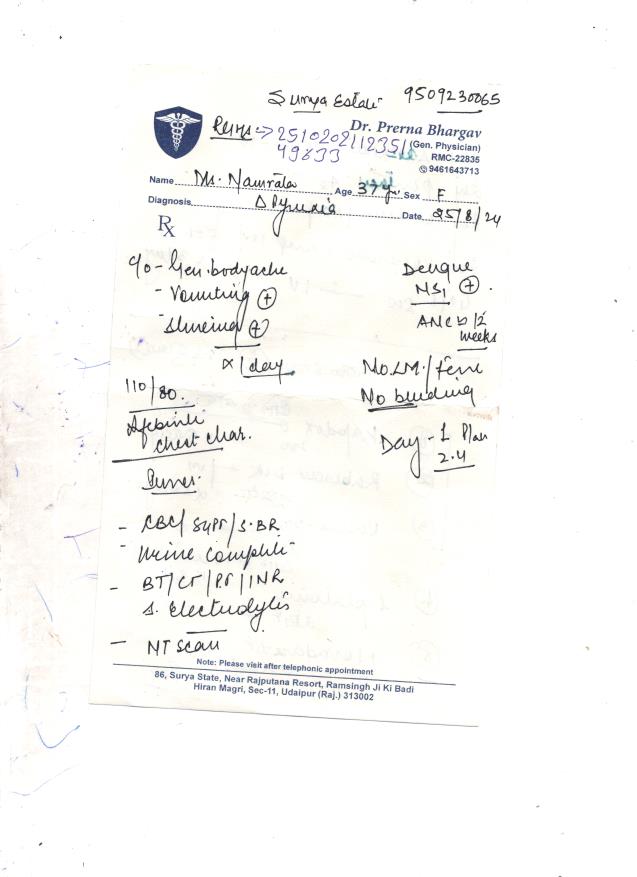 Surya Estate 9509230065
Dr. Prerna Bhargav
(Gen. Physician)
RMC-22835
9461643713
251020211235
49633
Name Ms. Namrata Age 37 yr. Sex F
Diagnosis Δ Pyrexia Date 25/8/24
Rx
c/o - Gen. bodyache
- Vomiting (+)
- Shivering (+)
x 1 day.
Dengue
NS1 (+).
ANC /12
weeks
No. LM./
No bleeding
110/80.
Afebrile
chest clear.
Day - 1 Plan
2.4
- CBC/ SGPT/ S.BR
- Urine complete
- BT/CT/PT/INR
S. Electrolytes
- NT Scan
Note: Please visit after telephonic appointment
86, Surya State, Near Rajputana Resort, Ramsingh Ji Ki Badi
Hiran Magri, Sec-11, Udaipur (Raj.) 313002